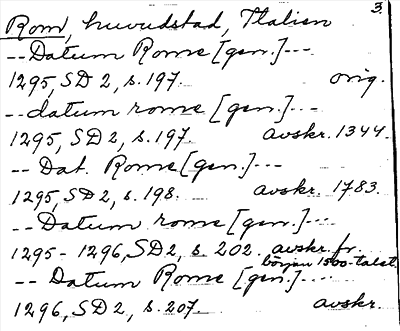 3
Rom, huvudstad, Italien
-- Datum Rome [gen.] ---
1295, SD 2, s. 197. orig.
-- datum rome [gen.] ---
1295, SD 2, s. 197. avskr. 1344.
-- Dat. Rome [gen.] ---
1295, SD 2, s. 198. avskr. 1783.
-- Datum rome [gen.] ---
1295 - 1296, SD 2, s. 202. avskr. fr.
början 1500-talet.
-- Datum Rome [gen.] ---
1296, SD 2, s. 207. avskr.